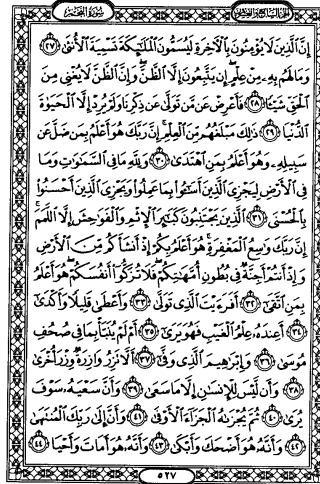 سورة النجم الجزء السابع والعشرون
إِنَّ ٱلَّذِينَ لَا يُؤْمِنُونَ بِٱلْآخِرَةِ لَيُسَمُّونَ ٱلْمَلَٰٓئِكَةَ تَسْمِيَةَ ٱلْأُنثَىٰ ٢٧
وَمَا لَهُم بِهِۦ مِنْ عِلْمٍ إِن يَتَّبِعُونَ إِلَّا ٱلظَّنَّ وَإِنَّ ٱلظَّنَّ لَا يُغْنِى مِنَ
ٱلْحَقِّ شَيْـًٔا ٢٨ فَأَعْرِضْ عَن مَّن تَوَلَّىٰ عَن ذِكْرِنَا وَلَمْ يُرِدْ إِلَّا ٱلْحَيَوٰةَ
ٱلدُّنْيَا ٢٩ ذَٰلِكَ مَبْلَغُهُم مِّنَ ٱلْعِلْمِ إِنَّ رَبَّكَ هُوَ أَعْلَمُ بِمَن ضَلَّ عَن
سَبِيلِهِۦ وَهُوَ أَعْلَمُ بِمَنِ ٱهْتَدَىٰ ٣٠ وَلِلَّهِ مَا فِى ٱلسَّمَٰوَٰتِ وَمَا
فِى ٱلْأَرْضِ لِيَجْزِىَ ٱلَّذِينَ أَسَٰٓـُٔوا۟ بِمَا عَمِلُوا۟ وَيَجْزِىَ ٱلَّذِينَ أَحْسَنُوا۟
بِٱلْحُسْنَى ٣١ ٱلَّذِينَ يَجْتَنِبُونَ كَبَٰٓئِرَ ٱلْإِثْمِ وَٱلْفَوَٰحِشَ إِلَّا ٱللَّمَمَ
إِنَّ رَبَّكَ وَٰسِعُ ٱلْمَغْفِرَةِ هُوَ أَعْلَمُ بِكُمْ إِذْ أَنشَأَكُم مِّنَ ٱلْأَرْضِ
وَإِذْ أَنتُمْ أَجِنَّةٌ فِى بُطُونِ أُمَّهَٰتِكُمْ فَلَا تُزَكُّوٓا۟ أَنفُسَكُمْ هُوَ أَعْلَمُ
بِمَنِ ٱتَّقَىٰٓ ٣٢ أَفَرَءَيْتَ ٱلَّذِى تَوَلَّىٰ ٣٣ وَأَعْطَىٰ قَلِيلًا وَأَكْدَىٰٓ
٣٤ أَعِندَهُۥ عِلْمُ ٱلْغَيْبِ فَهُوَ يَرَىٰٓ ٣٥ أَمْ لَمْ يُنَبَّأْ بِمَا فِى صُحُفِ
مُوسَىٰ ٣٦ وَإِبْرَٰهِيمَ ٱلَّذِى وَفَّىٰٓ ٣٧ أَلَّا تَزِرُ وَازِرَةٌ وِزْرَ أُخْرَىٰ
٣٨ وَأَن لَّيْسَ لِلْإِنسَٰنِ إِلَّا مَا سَعَىٰ ٣٩ وَأَنَّ سَعْيَهُۥ سَوْفَ
يُرَىٰ ٤٠ ثُمَّ يُجْزَىٰهُ ٱلْجَزَآءَ ٱلْأَوْفَىٰ ٤١ وَأَنَّ إِلَىٰ رَبِّكَ ٱلْمُنتَهَىٰ
٤٢ وَأَنَّهُۥ هُوَ أَضْحَكَ وَأَبْكَىٰ ٤٣ وَأَنَّهُۥ هُوَ أَمَاتَ وَأَحْيَا ٤٤
٥٢٧